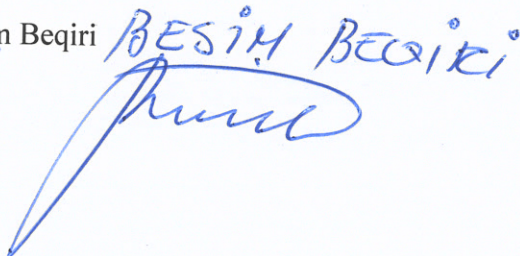 n Beqiri BESiM BEQiRi